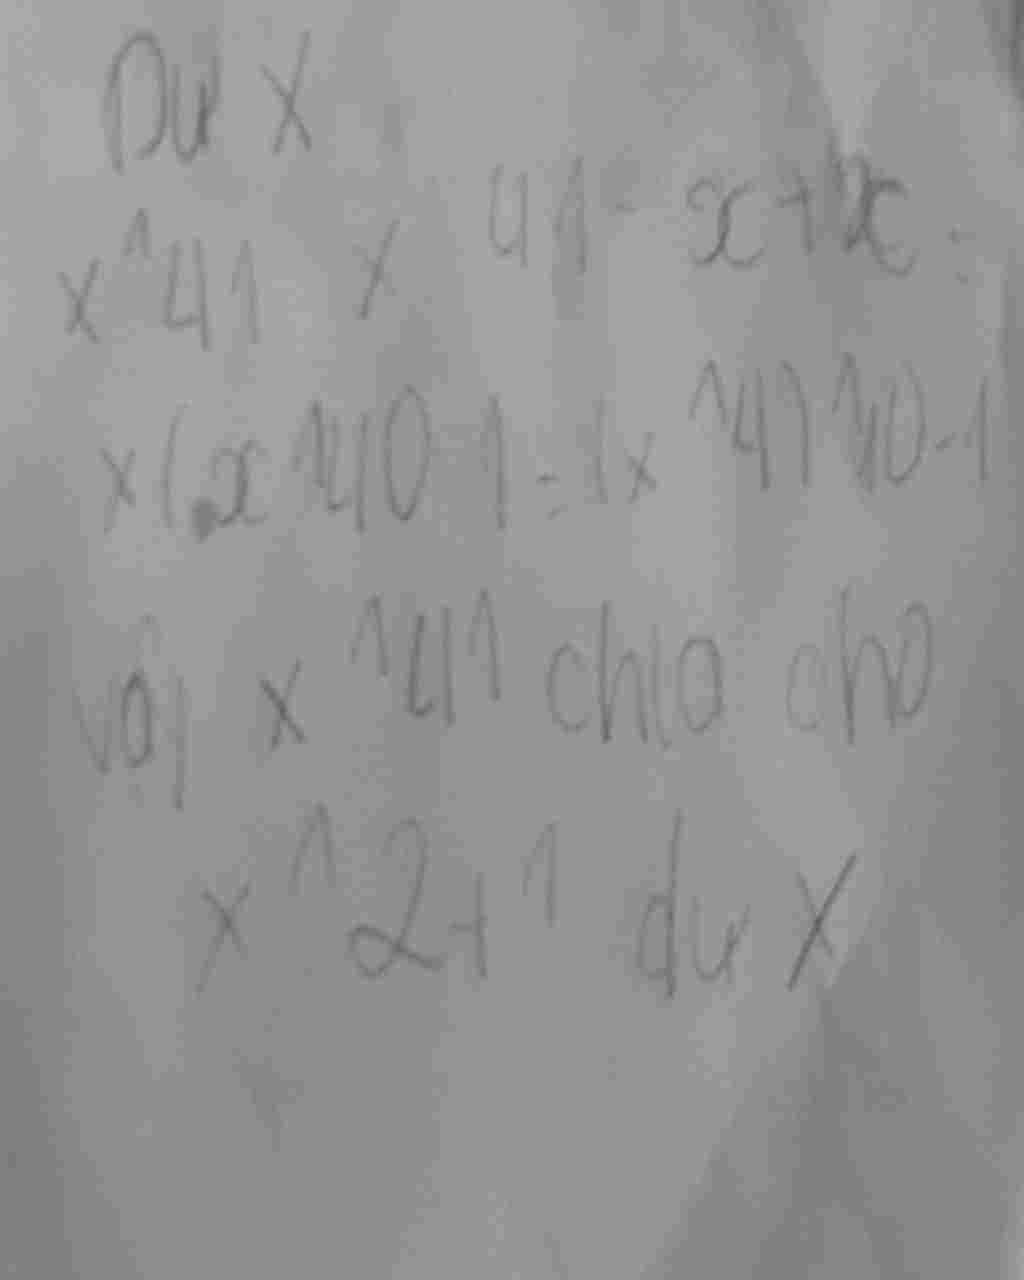 Dư x
x^41 x 41 - x + x =
x(x^40 1 = (x^41)^10 - 1
Vậy x^41 chia cho
x^2+1 dư x